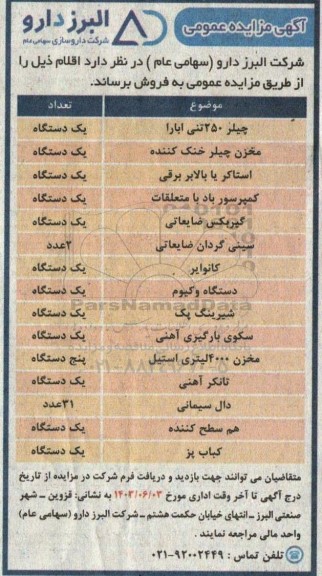 آگهی مزایده عمومی
البرز دارو
شرکت داروسازی سهامی عام
شرکت البرز دارو (سهامی عام ) در نظر دارد اقلام ذیل را
از طریق مزایده عمومی به فروش برساند.
موضوع تعداد
چیلر ۲۵۰تنی ابارا یک دستگاه
مخزن چیلر خنک کننده یک دستگاه
استاکر یا بالابر برقی یک دستگاه
کمپرسور باد با متعلقات یک دستگاه
گیربکس ضایعاتی یک دستگاه
سینی گردان ضایعاتی ۲عدد
کانوایر یک دستگاه
دستگاه وکیوم یک دستگاه
شیرینگ پک یک دستگاه
سکوی بارگیری آهنی یک دستگاه
مخزن ۴۰۰۰لیتری استیل پنج دستگاه
تانکر آهنی یک دستگاه
دال سیمانی ۳۱عدد
هم سطح کننده یک دستگاه
کباب پز یک دستگاه
متقاضیان می توانند جهت بازدید و دریافت فرم شرکت در مزایده از تاریخ
درج آگهی تا آخر وقت اداری مورخ ۱۴۰۲/۰۶/۰۳ به نشانی: قزوین ــ شهر
صنعتی البرز ــ انتهای خیابان حکمت هشتم ــ شرکت البرز دارو (سهامی عام)
واحد مالی مراجعه نمایند .
تلفن تماس : ۹۲۰۰۲۴۴۹-۰۲۱
ParsNamadData